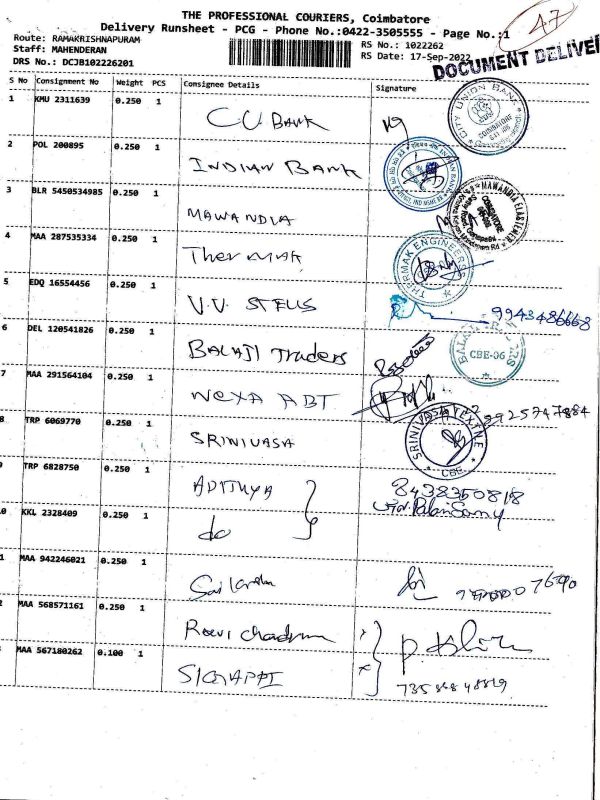 THE PROFESSIONAL COURIERS, Coimbatore
Delivery Runsheet - PCG - Phone No.:0422-3505555 - Page No.:1
47
Route: RAMAKRISHNAPURAM
Staff: MAHENDERAN
DRS No.: DCJB102226201
RS No.: 1022262
RS Date: 17-Sep-2022
DOCUMENT DELIVE
S No Consignment No Weight PCS Consignee Details Signature
1 KMU 2311639 0.250 1 CU BANK
CITY UNION BANK
COIMBATORE
2 POL 200895 0.250 1 INDIAN BANK
3 BLR 5450534985 0.250 1 MAWANDIA
MAWANDIA ELASTOMER
COIMBATORE
4 MAA 287535334 0.250 1 Ther MAK
THERMAK ENGINEERS
5 EDQ 16554456 0.250 1 V.V. STEELS 9943486668
6 DEL 120541826 0.250 1 BALAJI Traders
CBE-06
7 MAA 291564104 0.250 1 NEXA ABT 9925747884
8 TRP 6069770 0.250 1 SRINIVASA
SRINIVASA
CBE
9 TRP 6828750 0.250 1 ADITHYA 8438350818
0 KKL 2328409 0.250 1 do
1 MAA 942246021 0.250 1
2 MAA 568571161 0.250 1 Ravi chandran
MAA 567180262 0.100 1